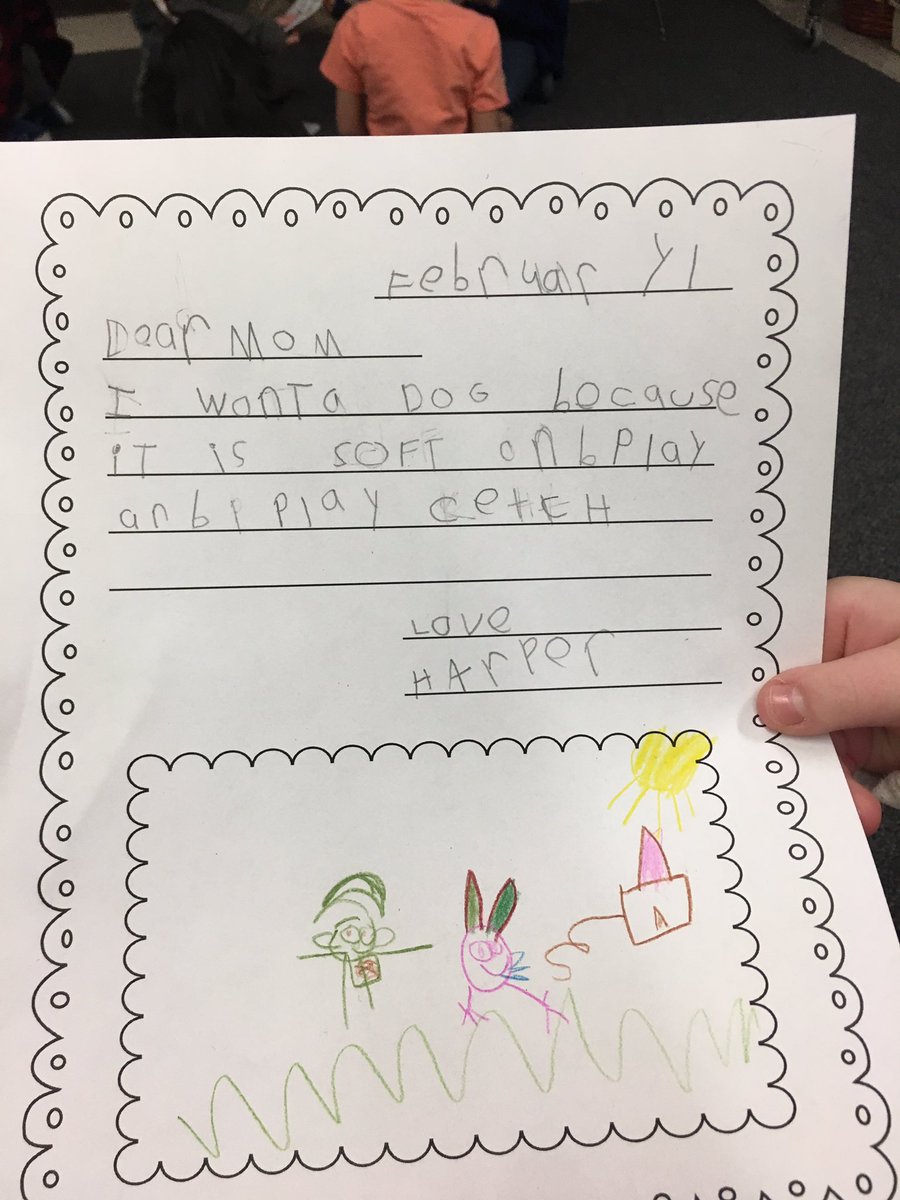 February 1
Dear Mom
I wonTa DOG becaus​e
iT is SOFT onb Play
anb p play CetcH
Love
HArPer
A